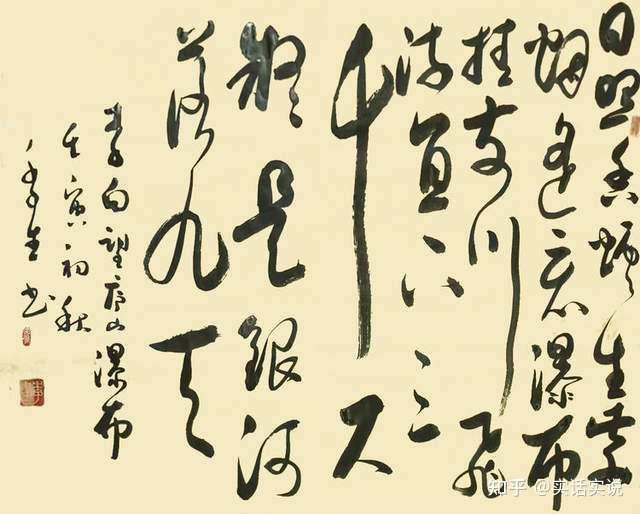 日照香炉生紫
烟遥看瀑布
挂前川飞
流直下三
千尺
疑是銀河
落九天
李白望庐山瀑布
壬寅初秋
生书
知乎 @实话实说